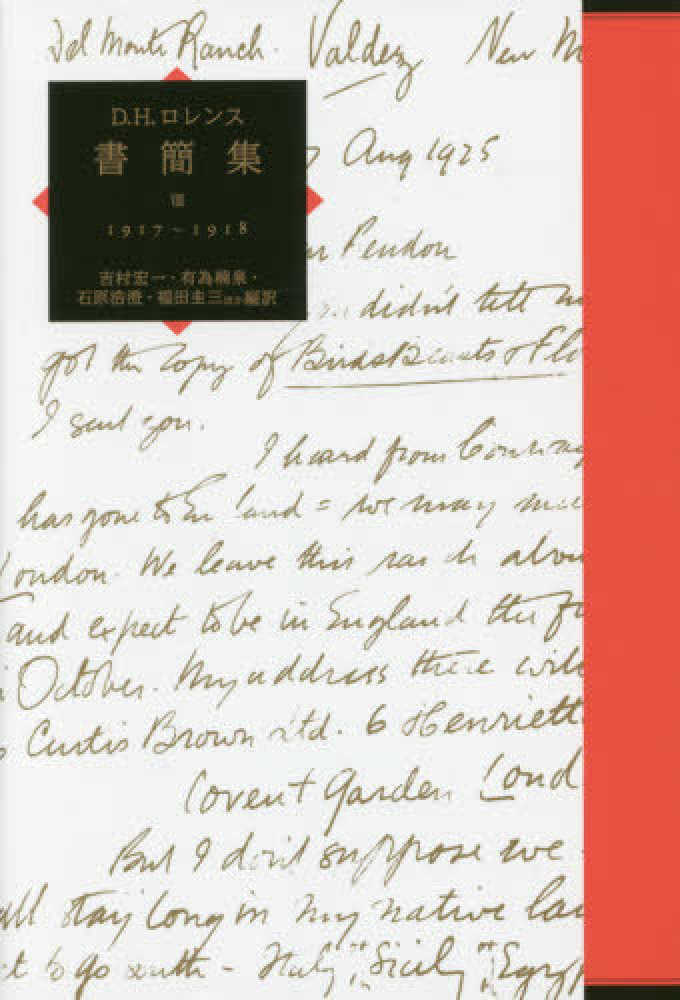 Del Monte Ranch. Valdez New M
D.H.ロレンス
書簡集
Ⅷ
1917~1918
吉村宏一・有為楠泉・
石原浩澄・福田圭三ほか編訳
7 Aug 1925
ar Pendon
didn't tell m
got the copy of Birds Beasts & Flo
I sent you.
I heard from
has gone to En land = we may
London. We leave this ranch abou
and expect to be in England the fi
October. My address there will
Curtis Brown Ltd. 6 Henriett
Covent Garden Lond
But I don't suppose we
all stay long in my native la
t to go south - Italy, Sicily, Egyp